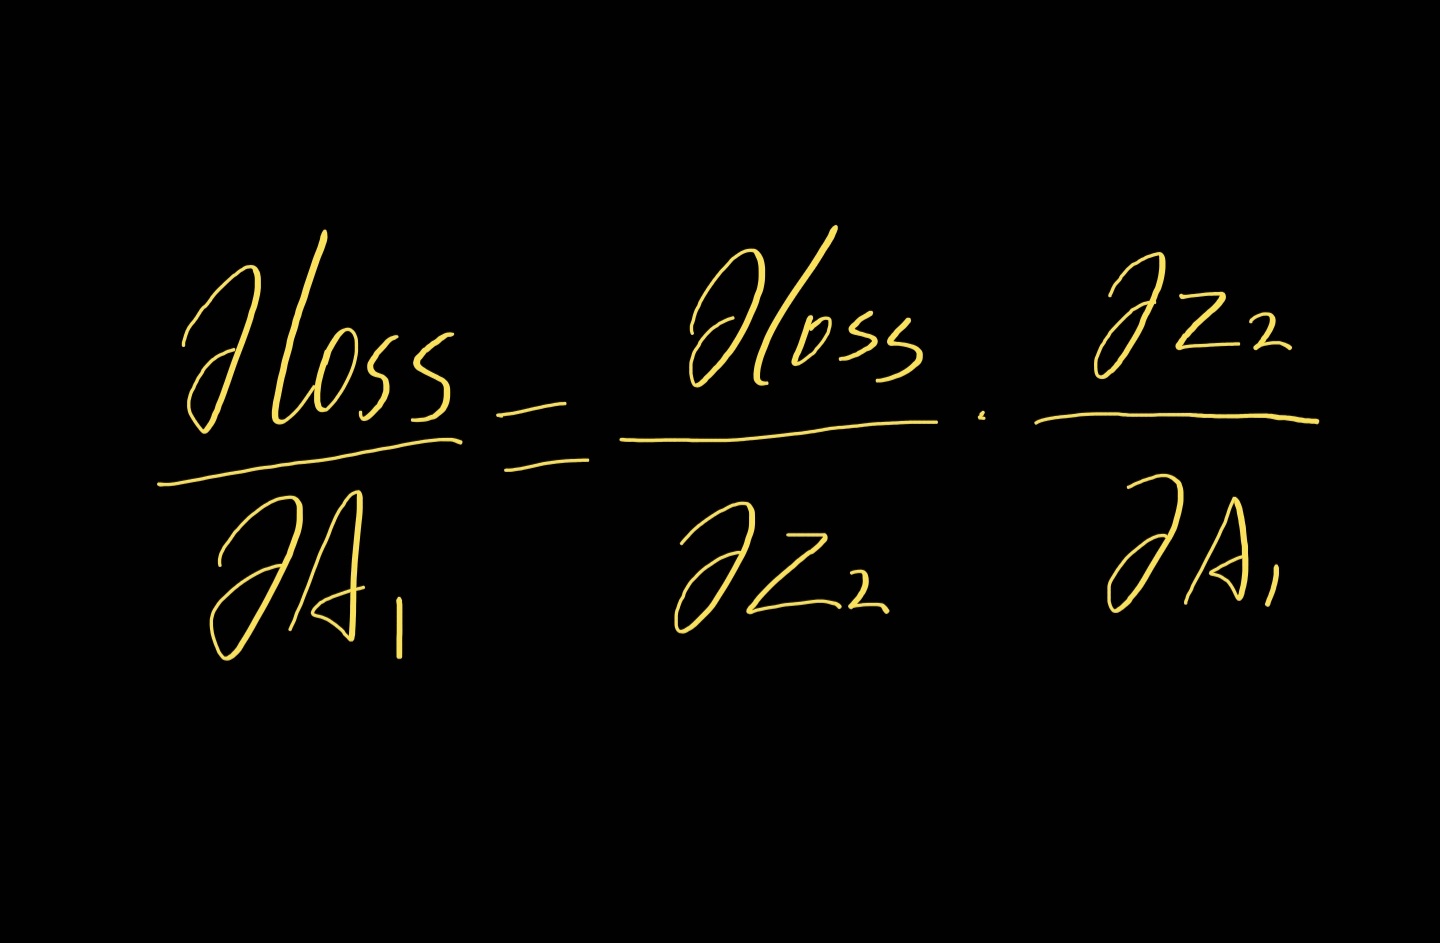 ∂loss/∂A₁ = ∂loss/∂Z₂ · ∂Z₂/∂A₁